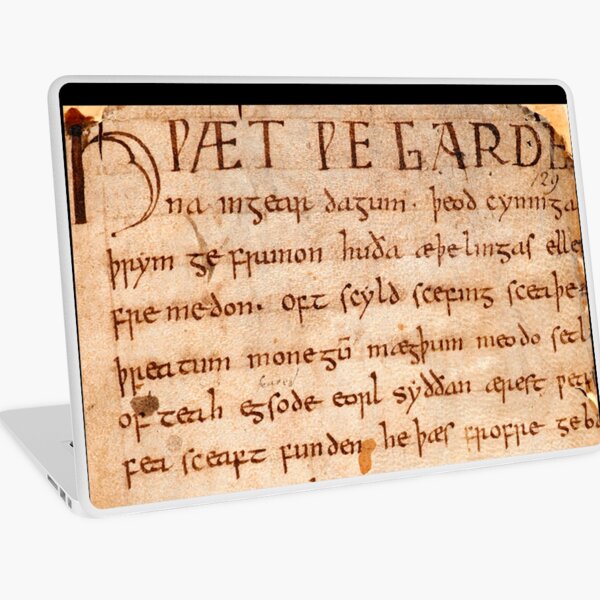 HǷÆT ǷE GARDE
129
na ingear dagum. þeod cyninga
þrym ge frunon huða æþelingas elle
fre medon. oft scyld scefing sceaþe
þreatum monegū mægþum meodo setl
of teah egsode eorl syððan ærest ƿea
fea sceaft funden he þæs frofre geba